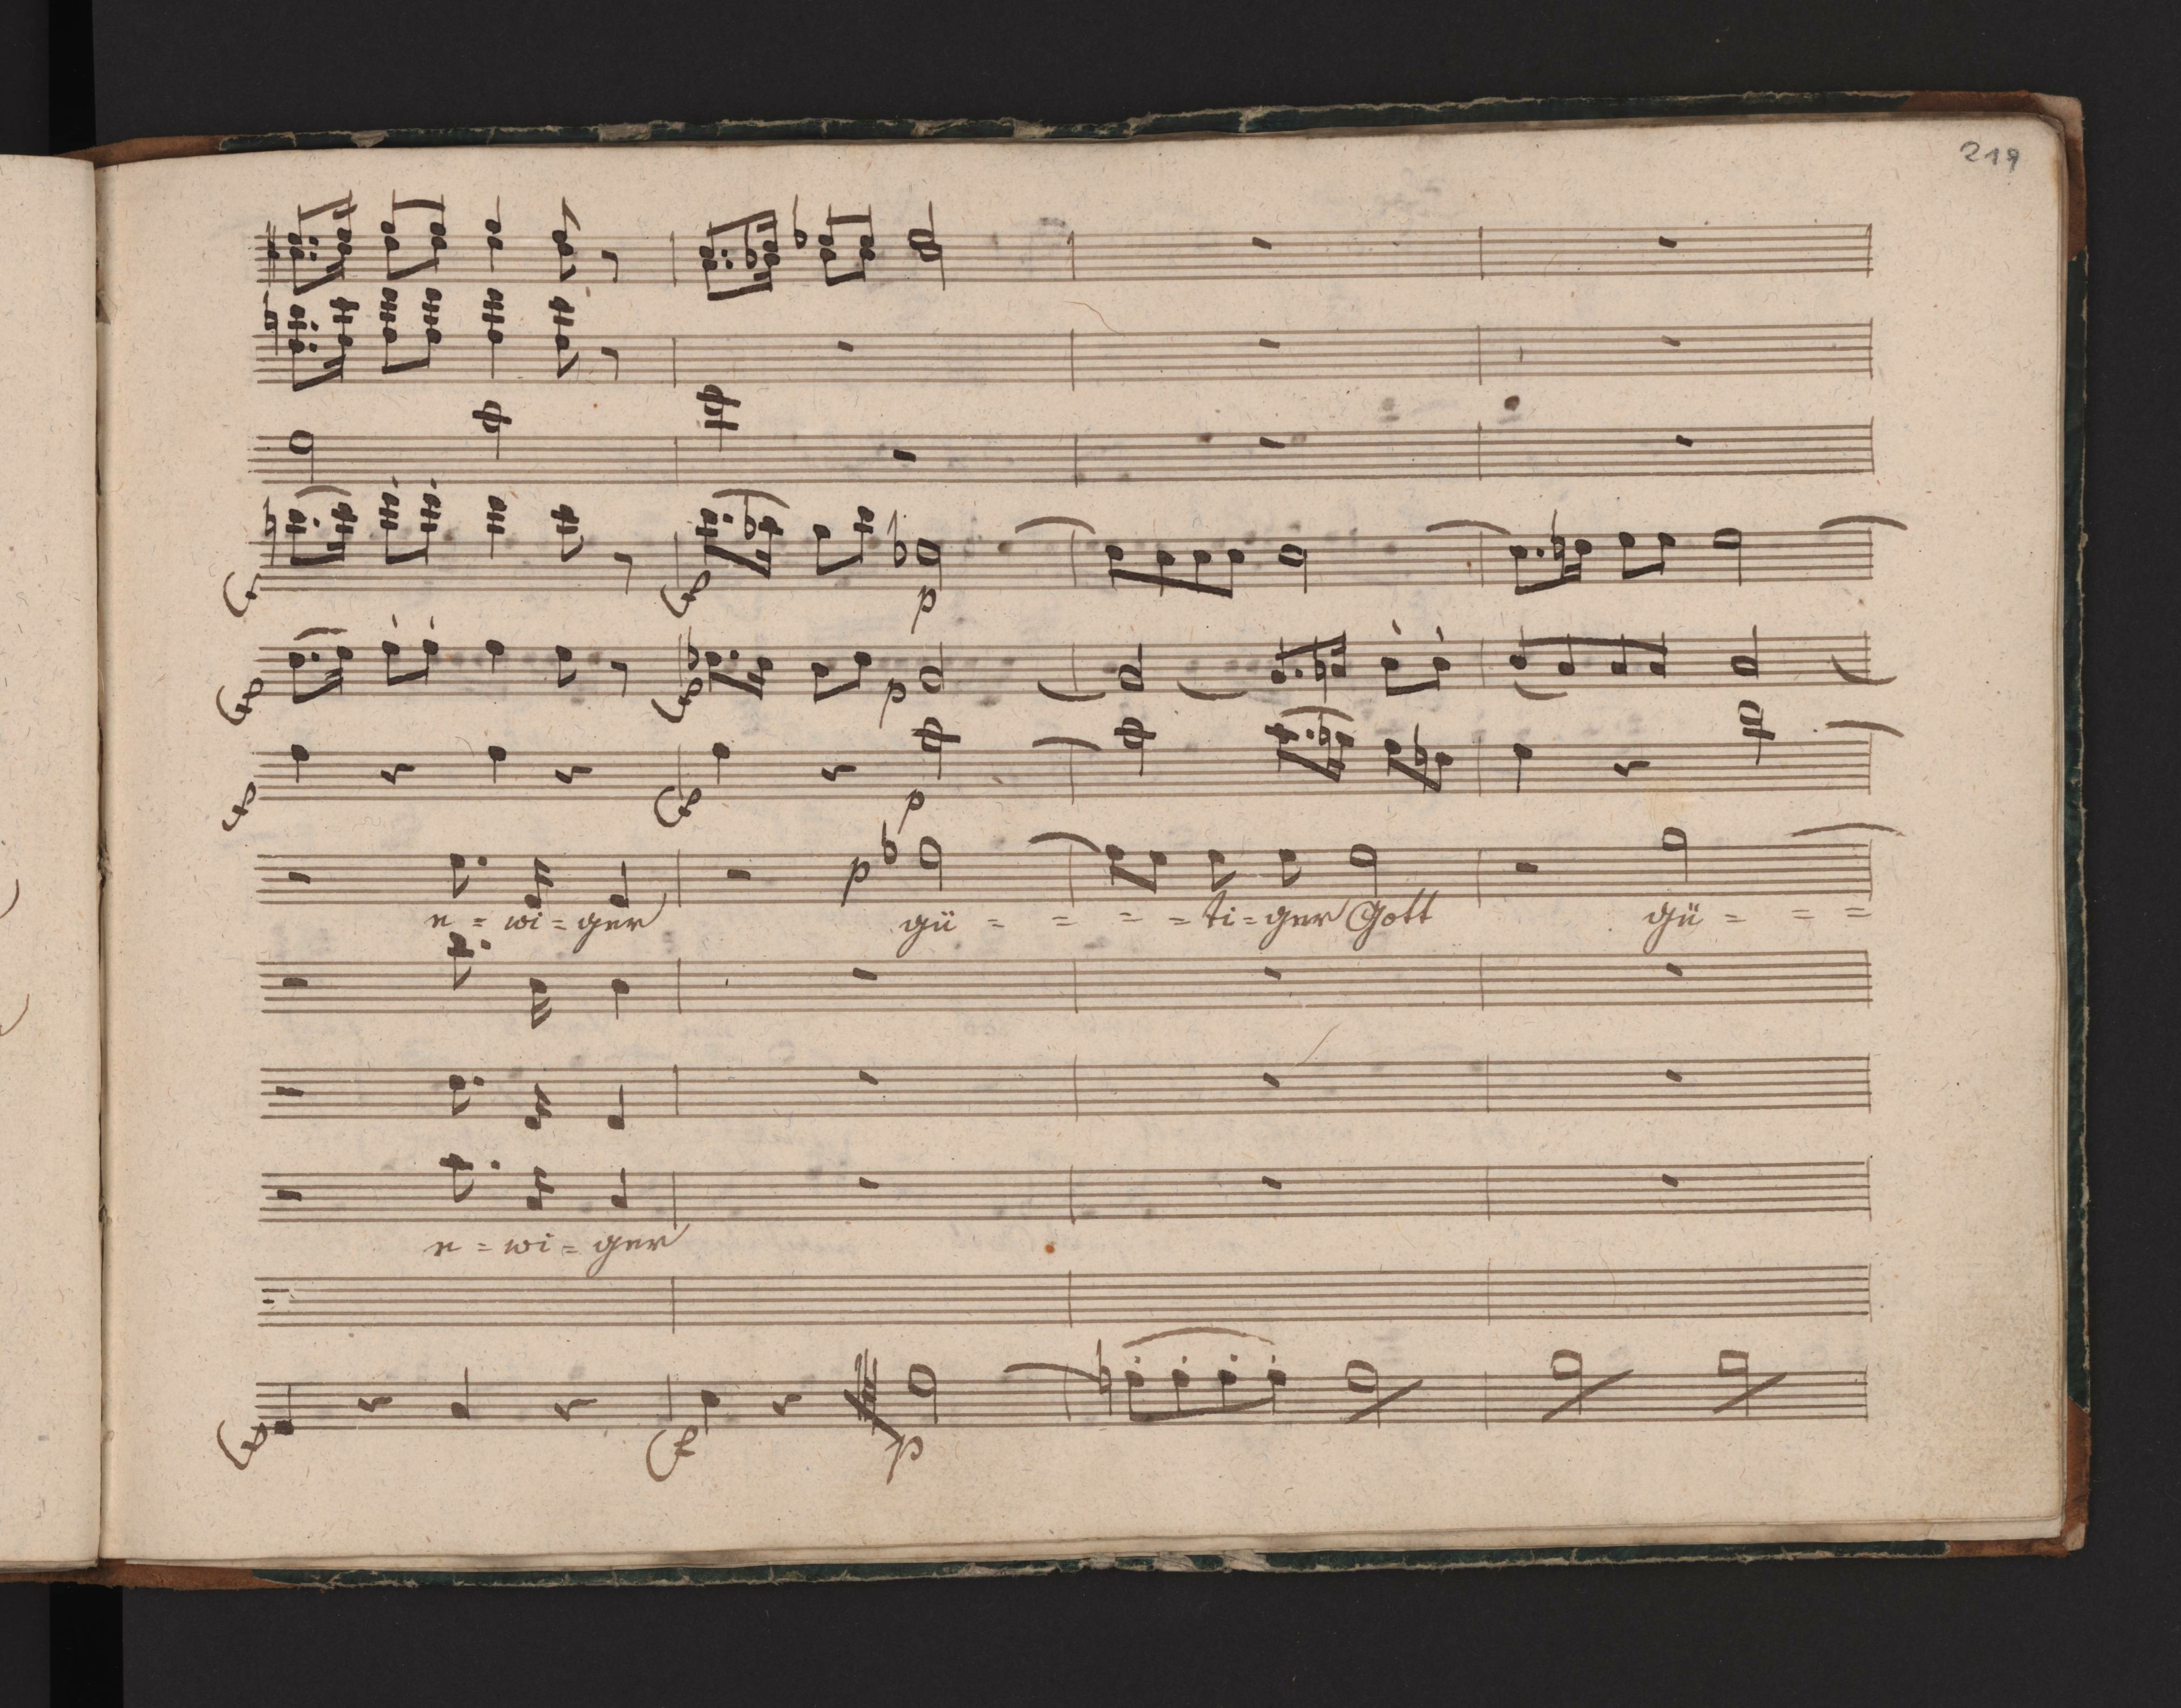 219
f
f
p
f
f
p
f
f
p
p
e - wi - ger gü - - - - ti - ger Gott gü - - -
e - wi - ger
f
f
p